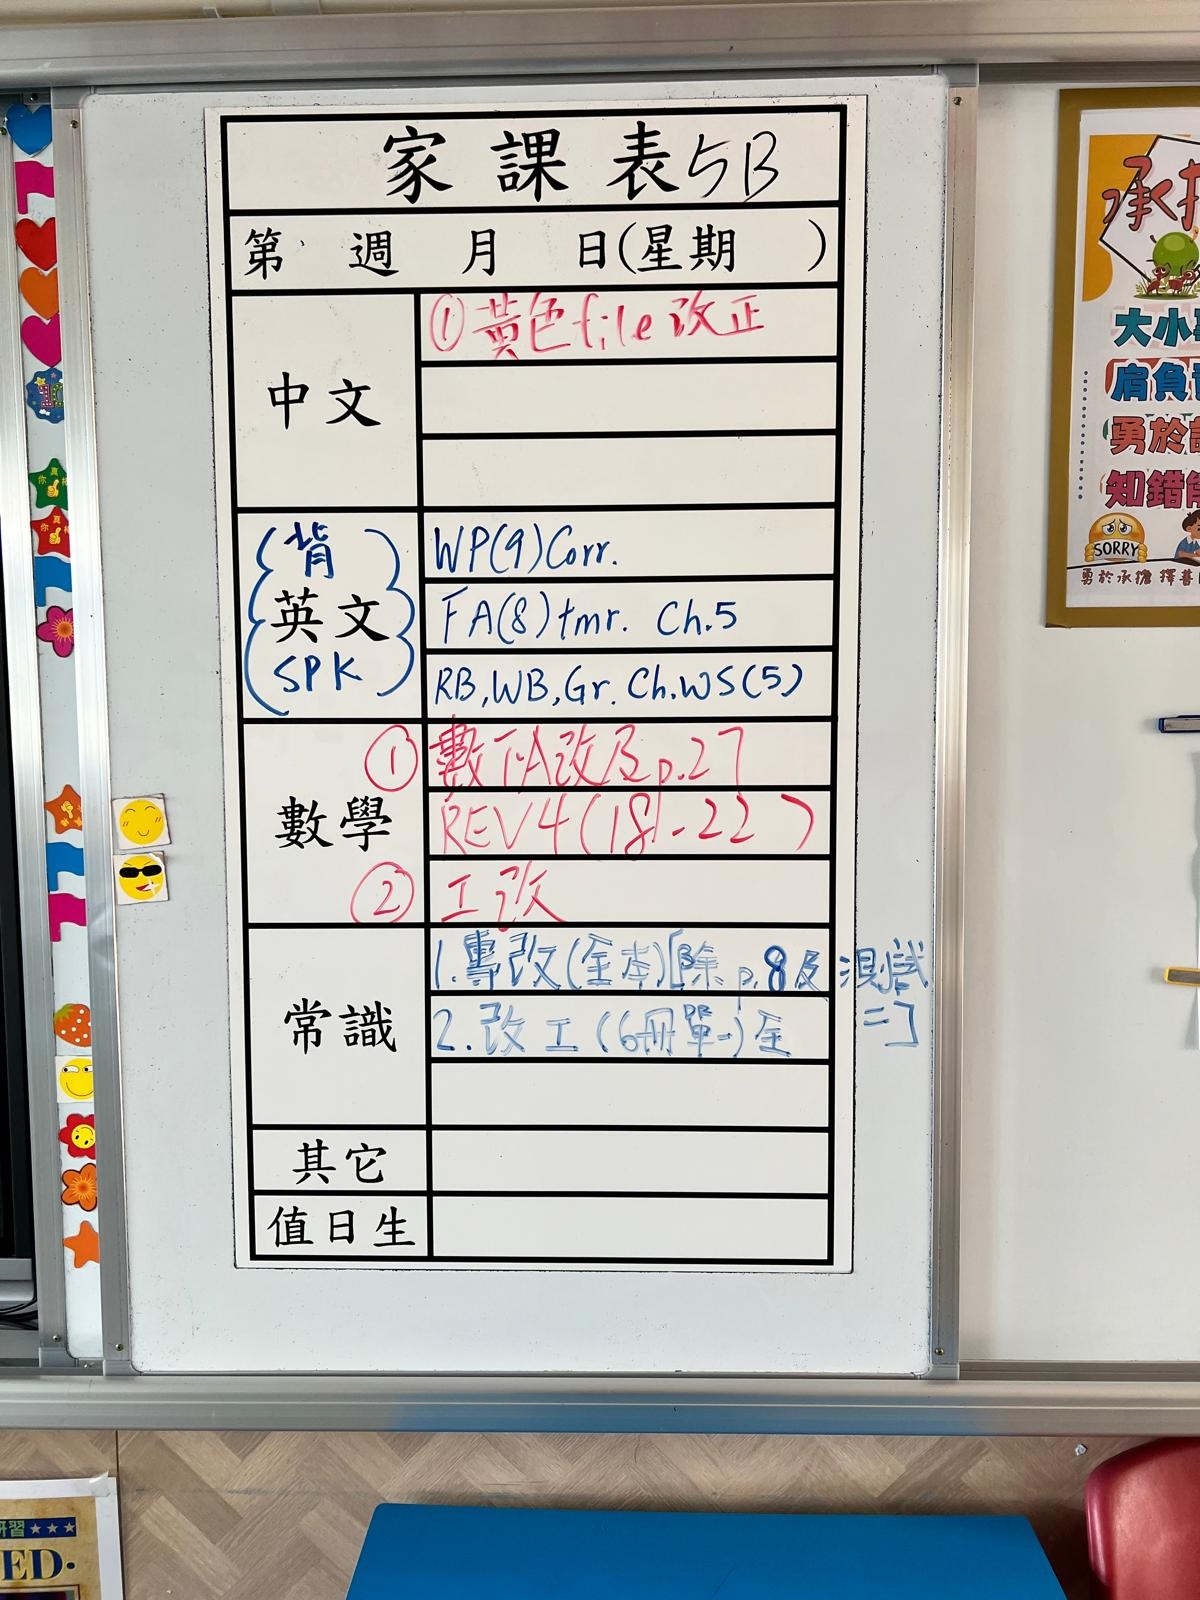 家課表5B
第 週 月 日(星期 )
中文
①黃色file改正
(背)
英文
SPK
WP(9)Corr.
FA(8)tmr. Ch.5
RB,WB,Gr. Ch.WS(5)
數學
①數FA改及p.27
REV4(18-22)
②工改
常識
1.專改(全本)[除p.8及測試
二]
2.改工(6冊單一)全
其它
值日生
大小
肩負
勇於
知錯
SORRY
勇於承擔 擇善
你真棒
你真棒
研習
ED·